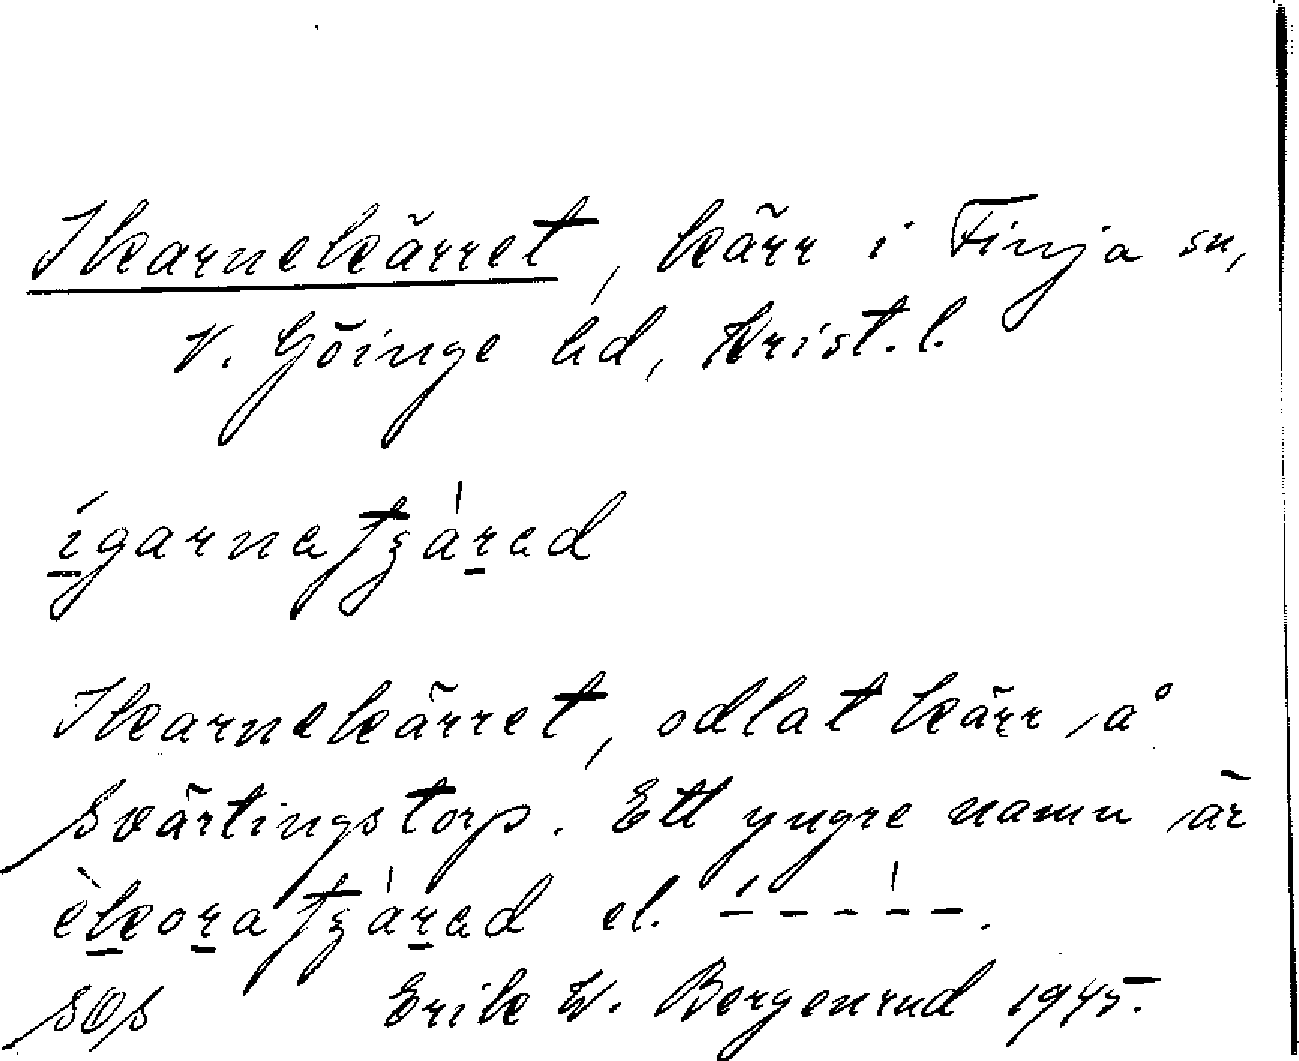 Ikarnekärret, kärr i Finja sn,
V. Göinge hd, Krist. l.
ígarnatʒárad
Ikarnekärret, odlat kärr på
Svärtingstorp. Ett yngre namn är
èkoratʒárad el. – – – – –.
SOS Erik W. Bergenrud 1945.